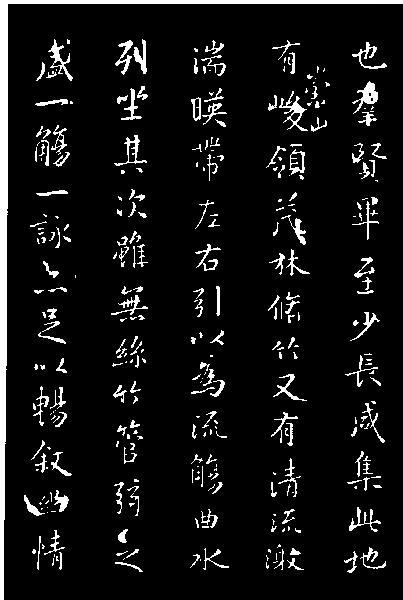 也羣賢畢至少長咸集此地
有崇山峻領茂林脩竹又有清流激
湍暎帶左右引以為流觴曲水
列坐其次雖無絲竹管弦之
盛一觴一詠亦足以暢敘幽情